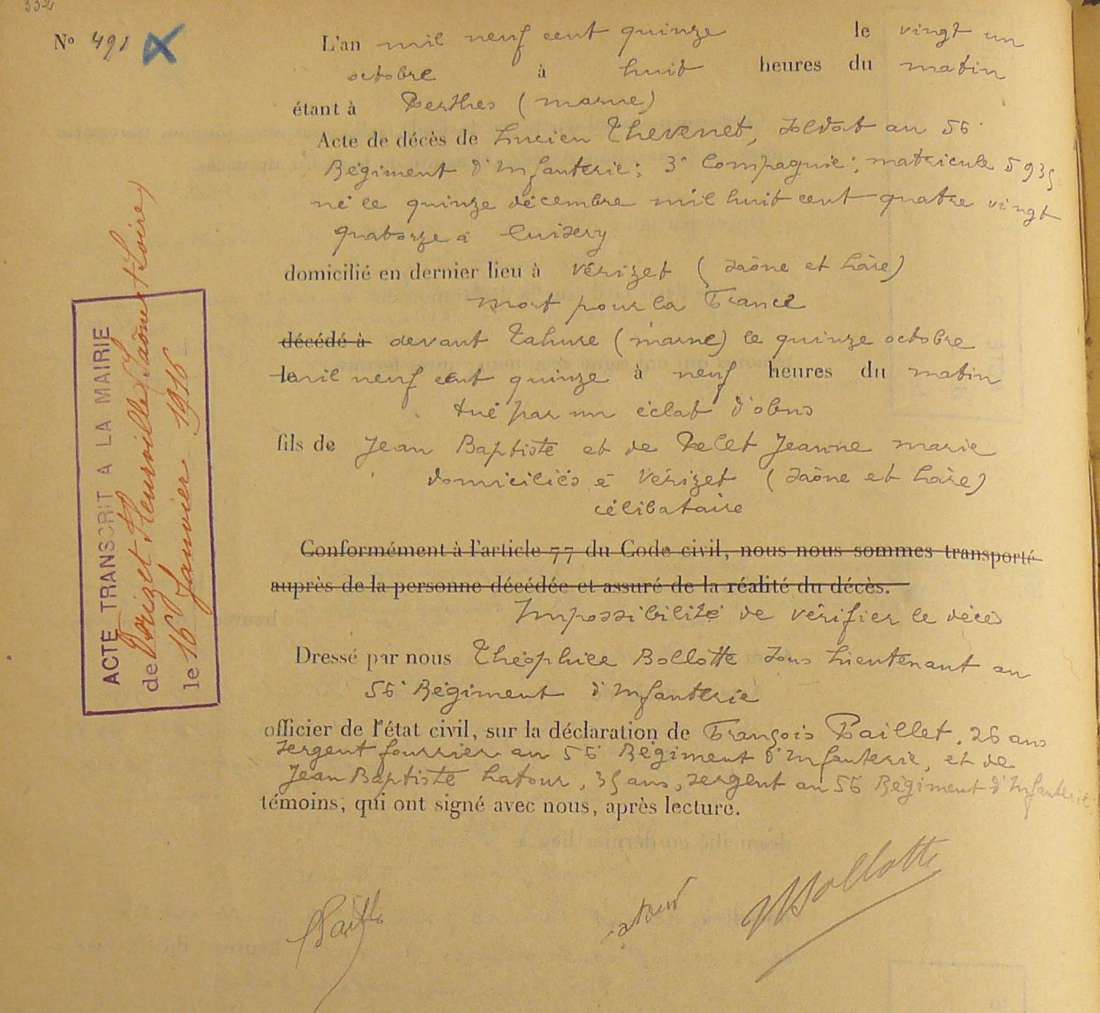 332
N° 491 X
L'an mil neuf cent quinze le vingt un
octobre à huit heures du matin
étant à Perthes (marne)
Acte de décès de Lucien Thevenet, soldat au 56e
Régiment d'Infanterie; 3e Compagnie; matricule 5935
né le quinze décembre mil huit cent quatre vingt
quatorze à Cuisery
domicilié en dernier lieu à Vérizet (Saône et Loire)
mort pour la France
décédé à devant Tahure (marne) le quinze octobre
le mil neuf cent quinze à neuf heures du matin
tué par un éclat d'obus
fils de Jean Baptiste et de Pelet Jeanne marie
domiciliés à Vérizet (Saône et Loire)
célibataire
Conformément à l'article 77 du Code civil, nous nous sommes transporté
auprès de la personne décédée et assuré de la réalité du décès.
Impossibilité de vérifier le décès
Dressé par nous Théophile Bollotte Sous Lieutenant au
56e Régiment d'Infanterie
officier de l'état civil, sur la déclaration de François Paillet, 26 ans
sergent fourrier au 56e Régiment d'Infanterie, et de
Jean Baptiste Latour, 35 ans, sergent au 56 Régiment d'Infanterie
témoins, qui ont signé avec nous, après lecture.
Latour Bollotte
ACTE TRANSCRIT A LA MAIRIE
de Vérizet Fleurville (Saône et Loire)
le 16 Janvier 1916